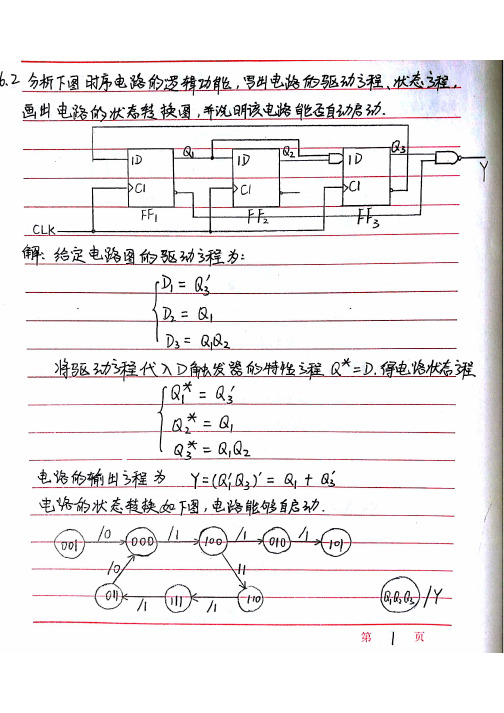 6.2 分析下图时序电路的逻辑功能,写出电路的驱动方程、状态方程,
画出电路的状态转换图,并说明该电路能否自动启动.
1D Q₁ 1D Q₂ 1D Q₃
C1 C1 C1 Y
FF₁ FF₂ FF₃
CLK
解: 给定电路图的驱动方程为:
D₁ = Q₃′
D₂ = Q₁
D₃ = Q₁Q₂
将驱动方程代入D触发器的特性方程 Q*=D. 得电路状态方程
Q₁* = Q₃′
Q₂* = Q₁
Q₃* = Q₁Q₂
电路的输出方程为 Y=(Q₁′Q₃)′ = Q₁ + Q₃′
电路的状态转换如下图,电路能够自启动.
001 /0 000 /1 100 /1 010 /1 101
/0 /1
011 /1 111 /1 110 Q₁Q₂Q₃ /Y
第 1 页